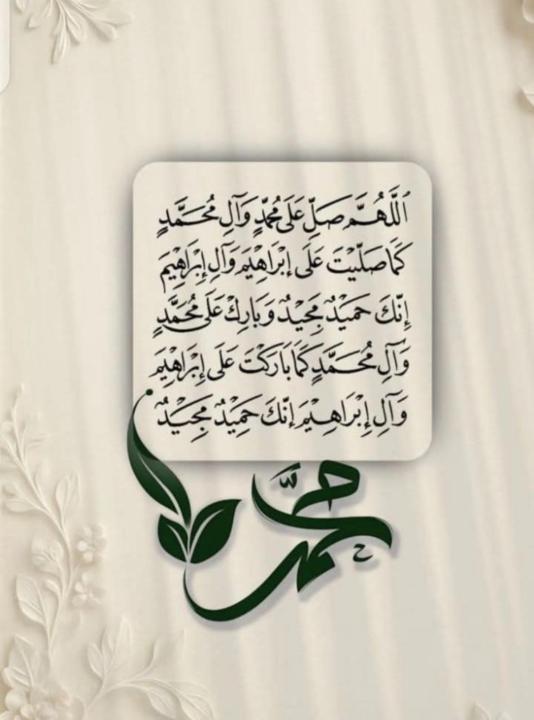 اللَّهُمَّ صَلِّ عَلَى مُحَمَّدٍ وَآلِ مُحَمَّدٍ
كَمَا صَلَّيْتَ عَلَى إِبْرَاهِيْمَ وَآلِ إِبْرَاهِيْمَ
إِنَّكَ حَمِيْدٌ مَجِيْدٌ وَبَارِكْ عَلَى مُحَمَّدٍ
وَآلِ مُحَمَّدٍ كَمَا بَارَكْتَ عَلَى إِبْرَاهِيْمَ
وَآلِ إِبْرَاهِيْمَ إِنَّكَ حَمِيْدٌ مَجِيْدٌ
محمَّد